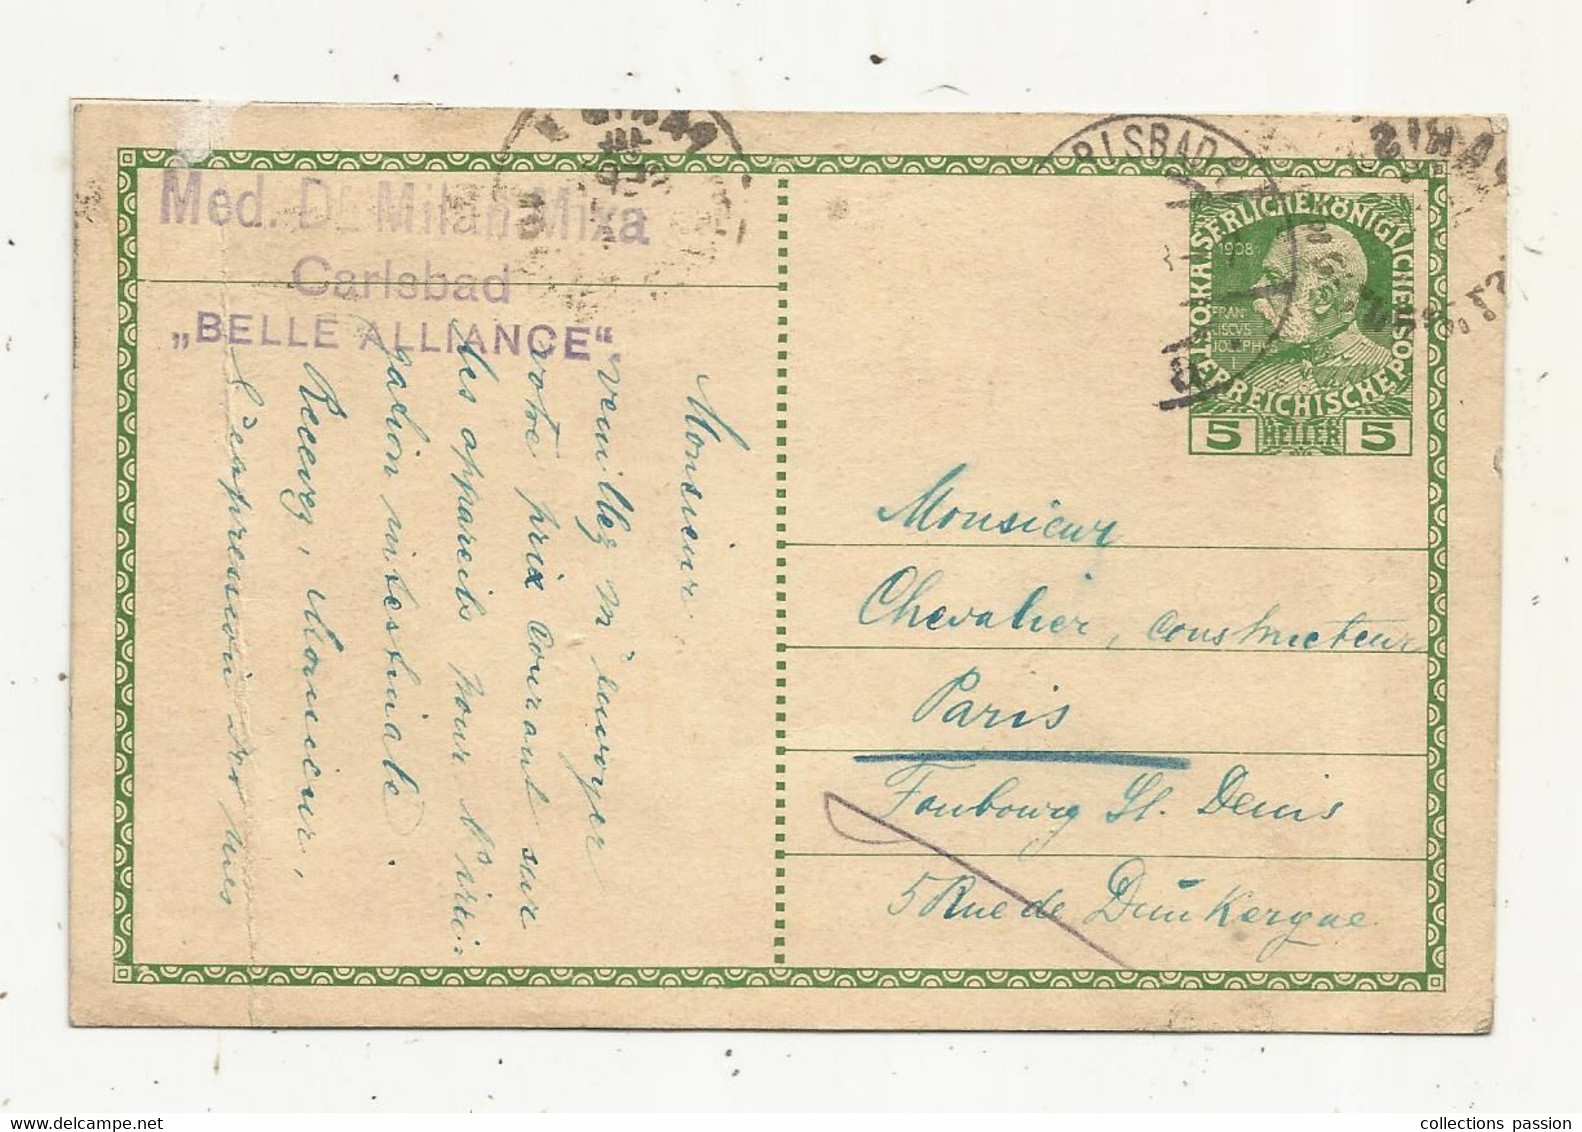 Med. Dr. Milan Mixa
Carlsbad
„BELLE ALLIANCE“.
Monsieur
veuillez m'envoyer
votre prix courant sur
les appareils pour l'irri-
gation intestinale.
Recevez, Monsieur,
l'expression de mes
PARIS
RLSBAD
PARIS
KAISERLICHE KÖNIGLICHE ÖSTERREICHISCHE POST
1908
FRAN
CISCVS
IOSEPHV
5 HELLER 5
Monsieur
Chevalier, constructeur
Paris
Foubourg St. Denis
5 Rue de Dunkergue
collections passion